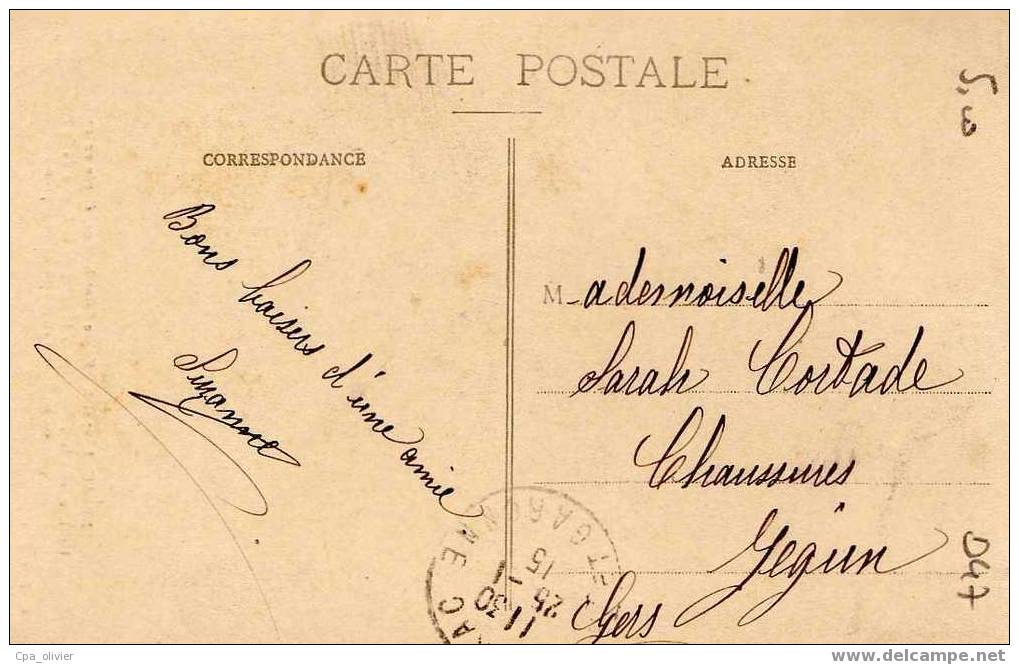 CARTE POSTALE
CORRESPONDANCE
Bons baisers d'une amie
Suzanne
ADRESSE
Mademoiselle
Sarah Cortade
Chaussures
Jegun
Gers
ET GARONNE
11 30
25 - 1
15
D47
Cpa_olivier
www.delcampe.net